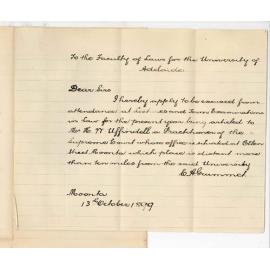 To the Faculty of Laws for the University of
Adelaide
Dear Sirs
I hereby apply to be excused from
attendance at Lectures and Term Examinations
in Law for the present year being articled to
Mr H W Uffindell a Practitioner of the
Supreme Court whose office is situated at Ellen
Street Moonta which place is distant more
than ten miles from the said University
Moonta
13th October 1899